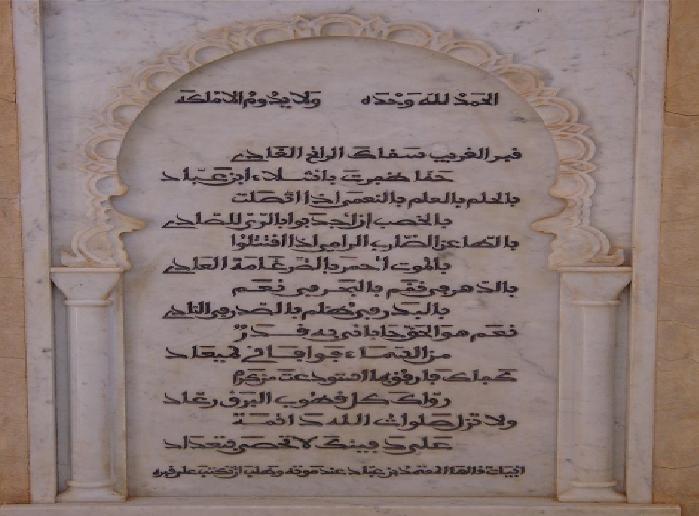 الحمد لله وحده ولا يدوم إلا ملكه
قبر الغريب سقاك الرائح الغادي
حقا ظفرت بأشلاء ابن عباد
بالحلم بالعلم بالنعمى إذا اتصلت
بالخصب إن أجدبوا بالري للصادي
بالطاعن الضارب الرامي إذا اقتتلوا
بالموت أحمر بالضرغامة العادي
بالدهر في نقم بالبحر في نعم
بالبدر في ظلم بالصدر في النادي
نعم هو الحق حاباني به قدر
من السماء فوافاني لميعاد
كفاك فارفق بما استودعت من كرم
رواك كل قطوب البرق رعاد
ولا تزل صلوات الله دائمة
على دفينك لا تحصى بتعداد
أبيات قالها المعتمد بن عباد عند موته وطلب أن تكتب على قبره